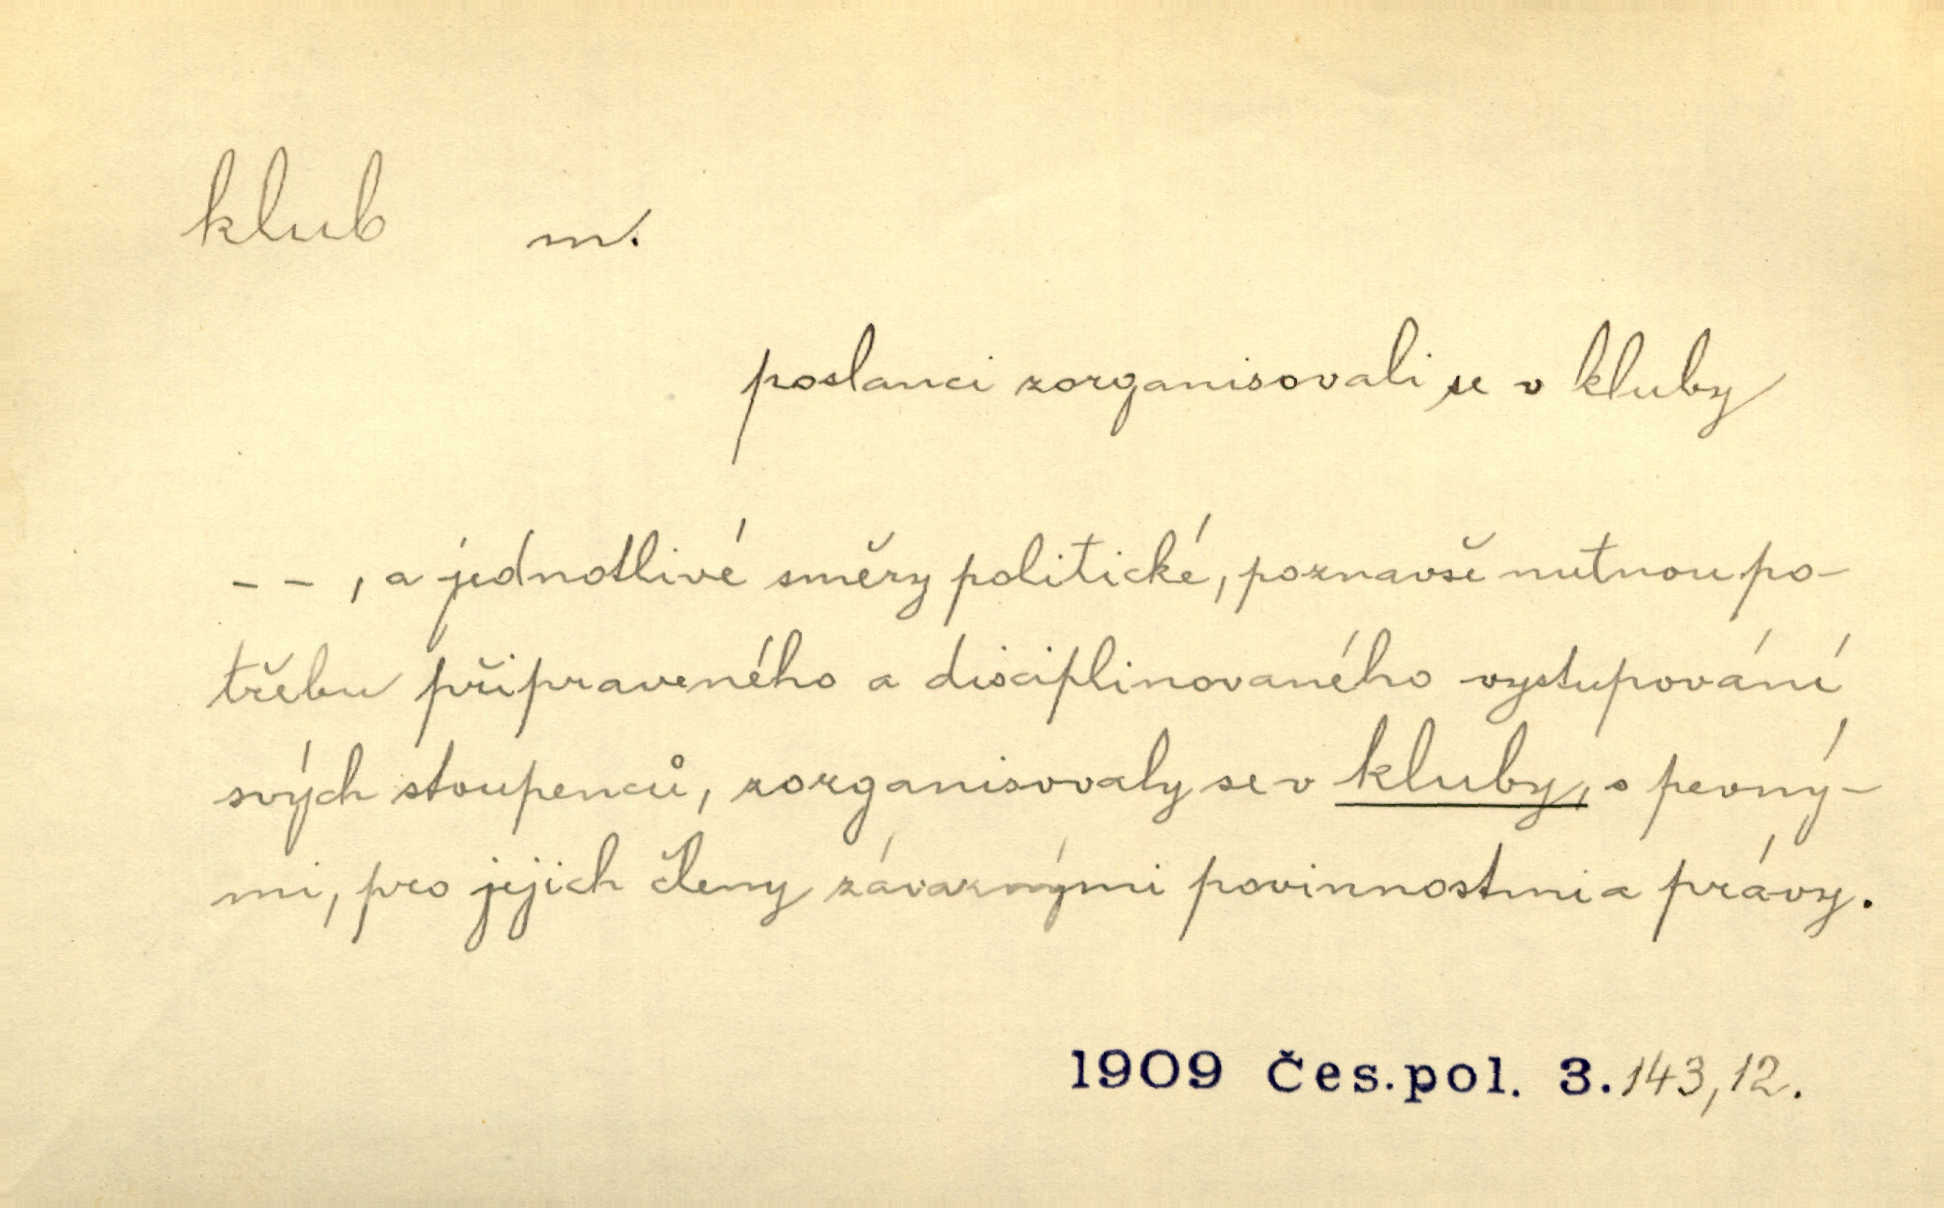 klub m.
poslanci zorganisovali se v kluby
– – , a jednotlivé směry politické, poznavše nutnou po-
třebu připraveného a disciplinovaného vystupování
svých stoupenců, zorganisovaly se v kluby, s pevný-
mi, pro jejich členy závaznými povinnostmi a právy.
1909 Čes.pol. 3. 143,12.